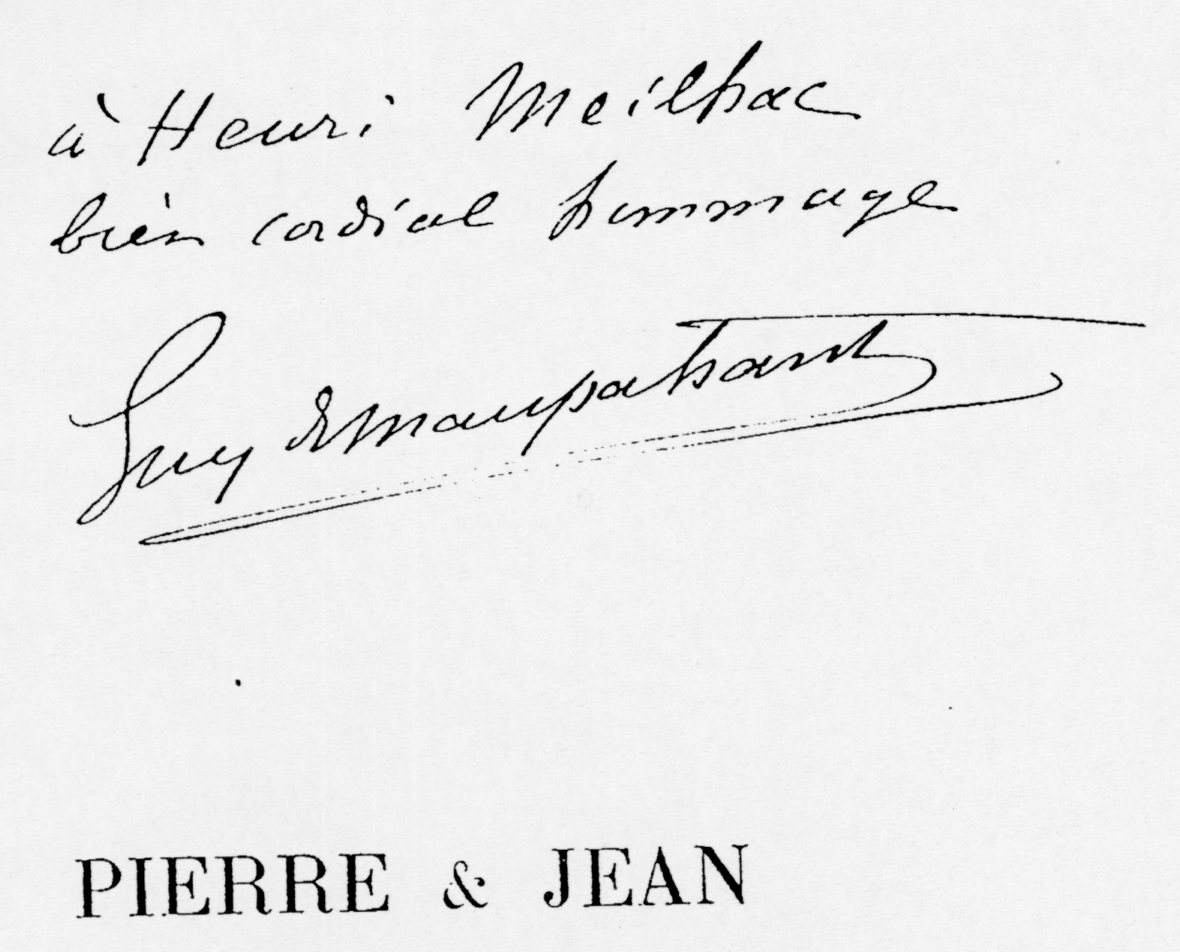 à Henri Meilhac
bien cordial hommage
Guy de Maupassant
PIERRE & JEAN